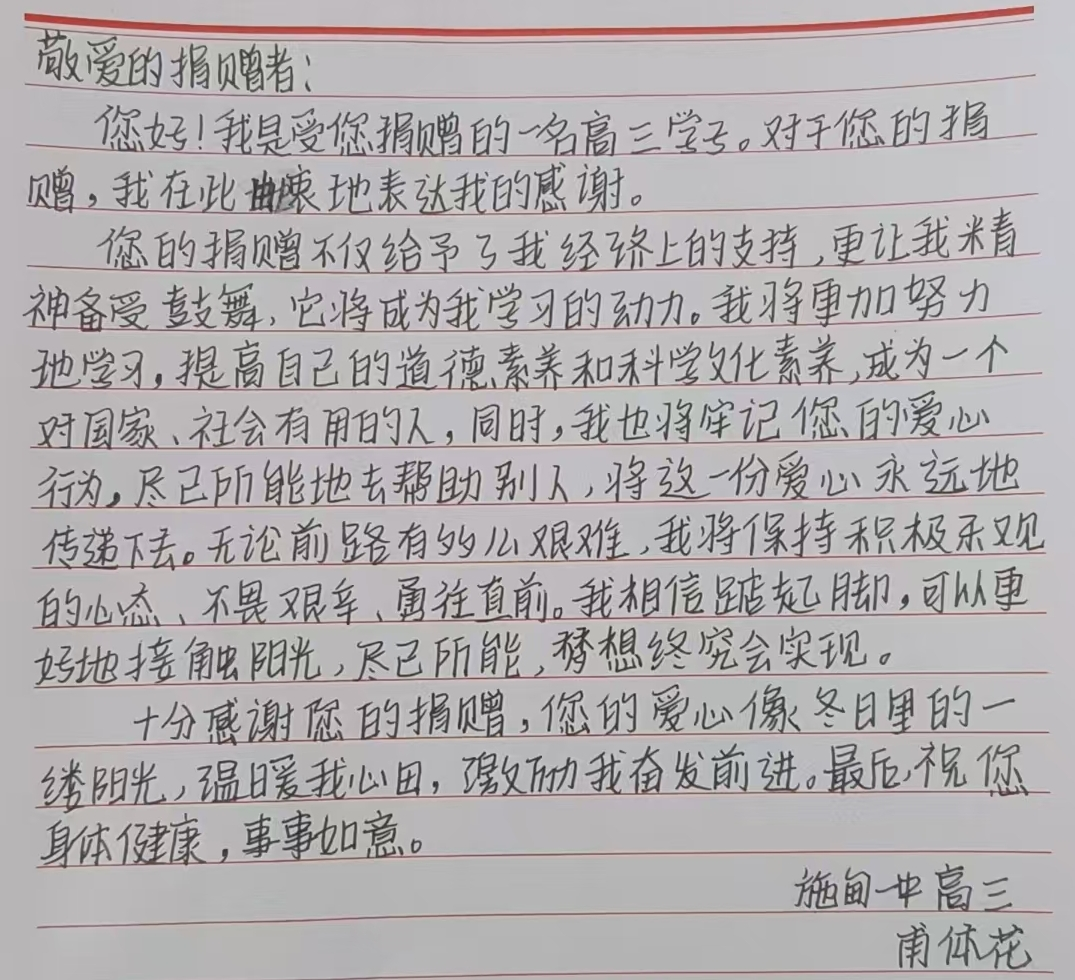 敬爱的捐赠者：
您好！我是受您捐赠的一名高三学子。对于您的捐
赠，我在此由衷地表达我的感谢。
您的捐赠不仅给予了我经济上的支持，更让我精
神备受鼓舞，它将成为我学习的动力。我将更加努力
地学习，提高自己的道德素养和科学文化素养，成为一个
对国家、社会有用的人，同时，我也将牢记您的爱心
行为，尽己所能地去帮助别人，将这一份爱心永远地
传递下去。无论前路有多么艰难，我将保持积极乐观
的心态、不畏艰辛、勇往直前。我相信踮起脚，可以更
好地接触阳光，尽己所能，梦想终究会实现。
十分感谢您的捐赠，您的爱心像冬日里的一
缕阳光，温暖我心田，激励我奋发前进。最后，祝您
身体健康，事事如意。
施甸一中高三
甫体花